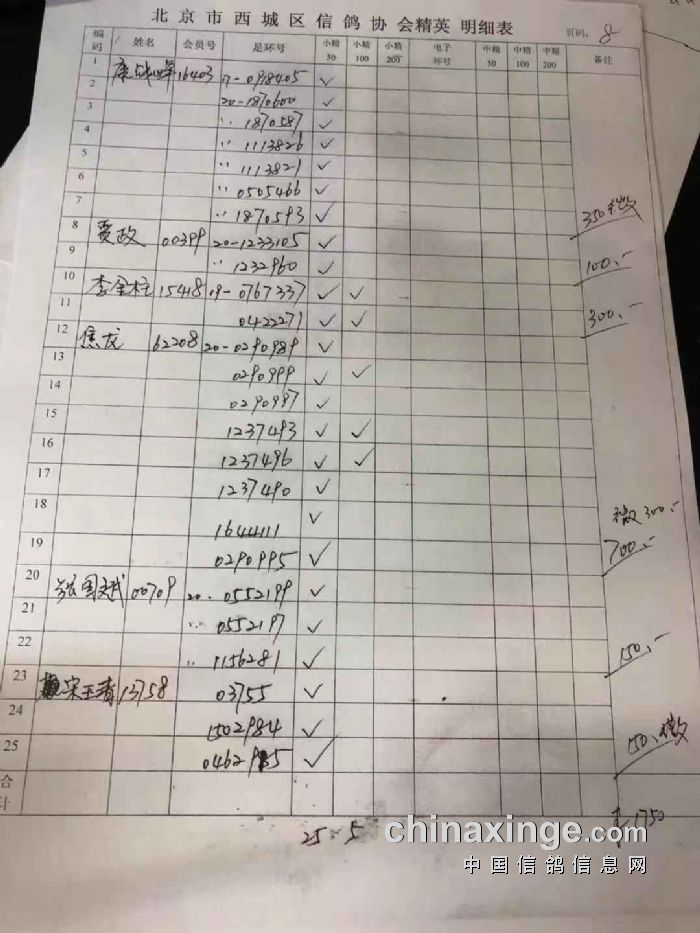 北京市西城区信鸽协会精英 明细表
页码: 8
编码 姓名 会员号 足环号 小精50 小精100 小精200 电子环号 中精50 中精100 中精200 备注
1 16403 17-0918405 ✓
2 20-1870600 ✓
3 〃 1870587 ✓
4 〃 1113826 ✓
5 〃 1113821 ✓
6 〃 0505466 ✓
7 〃 1870593 ✓ 350 微
8 贾政 00399 20-1233105 ✓
9 〃 1232960 ✓ 100.-
10 李金柱 15418 19-0767337 ✓ ✓
11 0422271 ✓ ✓ 300.-
12 焦龙 62208 20-0290989 ✓
13 0290999 ✓ ✓
14 0290997 ✓
15 1237493 ✓ ✓
16 1237496 ✓ ✓
17 1237490 ✓
18 1644111 ✓ 微300.-
19 0290995 ✓ 700.-
20 张国斌 00709 20-0552199 ✓
21 〃 0552197 ✓
22 〃 1156281 ✓ 150.-
23 宋玉清 13758 03755 ✓
24 1502984 ✓
25 0462985 ✓ 150.微
合计
25 5 1750
chinaxinge.com
中国信鸽信息网